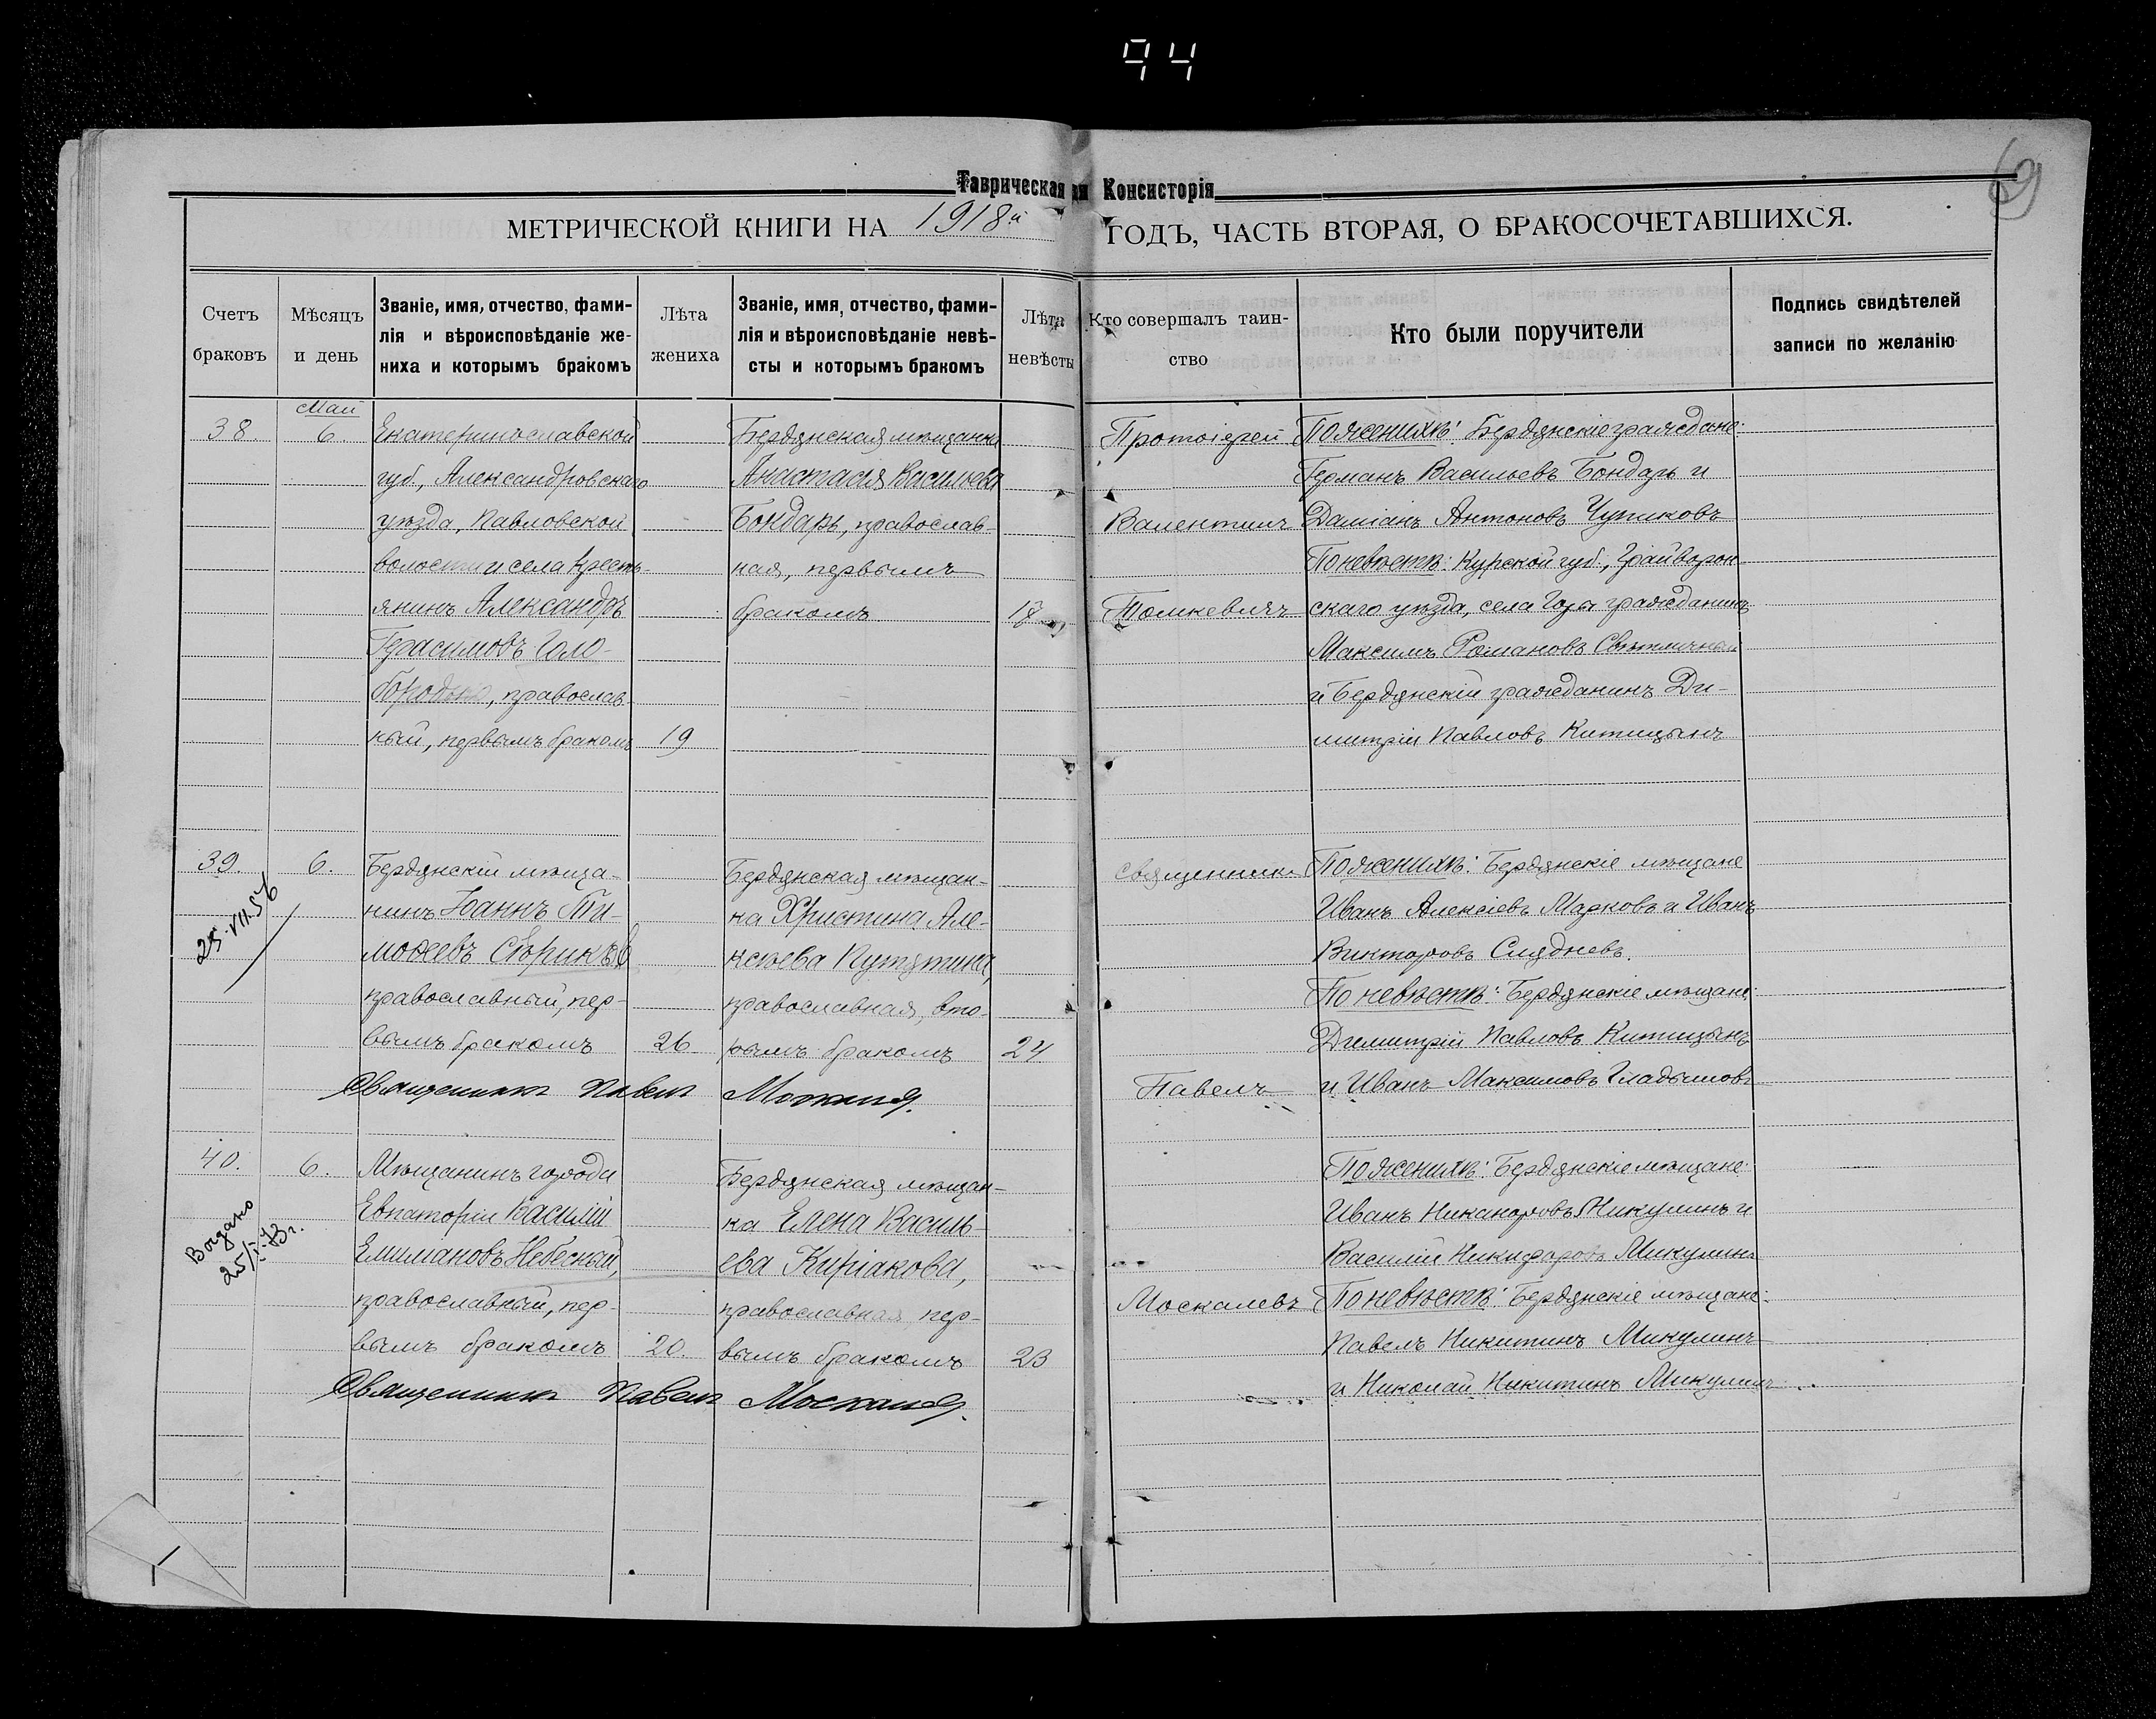 94
69
Таврическая Консисторія
МЕТРИЧЕСКОЙ КНИГИ НА 1918й ГОДЪ, ЧАСТЬ ВТОРАЯ, О БРАКОСОЧЕТАВШИХСЯ.
Счетъ
браковъ
Мѣсяцъ
и день
Званіе, имя, отчество, фами-
лія и вѣроисповѣданіе же-
ниха и которымъ бракомъ
Лѣта
жениха
Званіе, имя, отчество, фами-
лія и вѣроисповѣданіе невѣ-
сты и которымъ бракомъ
Лѣта
невѣсты
Кто совершалъ таин-
ство
Кто были поручители
Подпись свидѣтелей
записи по желанію
38.
Май
6.
Екатеринославской
губ., Александровскаго
уѣзда, Павловской
волости и села кресть-
янинъ Александръ
Герасимовъ Голо-
бородько, православ-
ный, первымъ бракомъ
19
Бердянская мѣщанка
Анастасія Васильева
Бондарь, православ-
ная, первымъ
бракомъ
Протоіерей
Валентинъ
Томкевичъ
По женихѣ: Бердянскіе граждане:
Германъ Васильевъ Бондарь и
Даміанъ Антоновъ Чупиковъ
По невѣстѣ: Курской губ., Грайворон-
скаго уѣзда, села Горы гражданинъ
Максимъ Романовъ
и Бердянскій гражданинъ Ди-
митрій Павловъ Китицынъ
39.
25.VII.56
6.
Бердянскій мѣща-
нинъ Іоаннъ Ти-
моѳеевъ Сѣриковъ
православный, пер-
вымъ бракомъ
26
Бердянская мѣщан-
ка Христина Але-
ксѣева Путятина,
православная, вто-
рымъ бракомъ
24
Священникъ Павелъ
Священникъ
Павелъ
Москалевъ
По женихѣ: Бердянскіе мѣщане
Иванъ Алексіевъ Марковъ и Иванъ
Викторовъ Слѣдневъ.
По невѣстѣ: Бердянскіе мѣщане:
Димитрій Павловъ Китицынъ
и Иванъ Максимовъ Гладышовъ
40.
Выдано
25/X-43г.
6.
Мѣщанинъ города
Евпаторіи Василій
Емимановъ Небесный,
православный, пер-
вымъ бракомъ
20.
Бердянская мѣщан-
ка Елена Василь-
ева Киріакова,
православная, пер-
вымъ бракомъ
23
Священникъ Павелъ
По женихѣ: Бердянскіе мѣщане:
Иванъ Никаноровъ Микулинъ и
Василій Никифоровъ Микулинъ
По невѣстѣ: Бердянскіе мѣщане:
Павелъ Никитинъ Микулинъ
и Николай Никитинъ Микулинъ